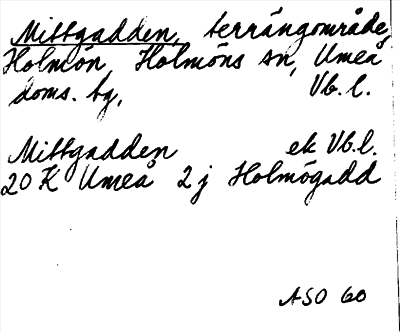 Mittgadden, terrängområde,
Holmön, Holmöns sn, Umeå
doms. tg, Vb. l.
Mittgadden ek Vb. l.
20 K Umeå 2 j Holmögadd
ASO 60